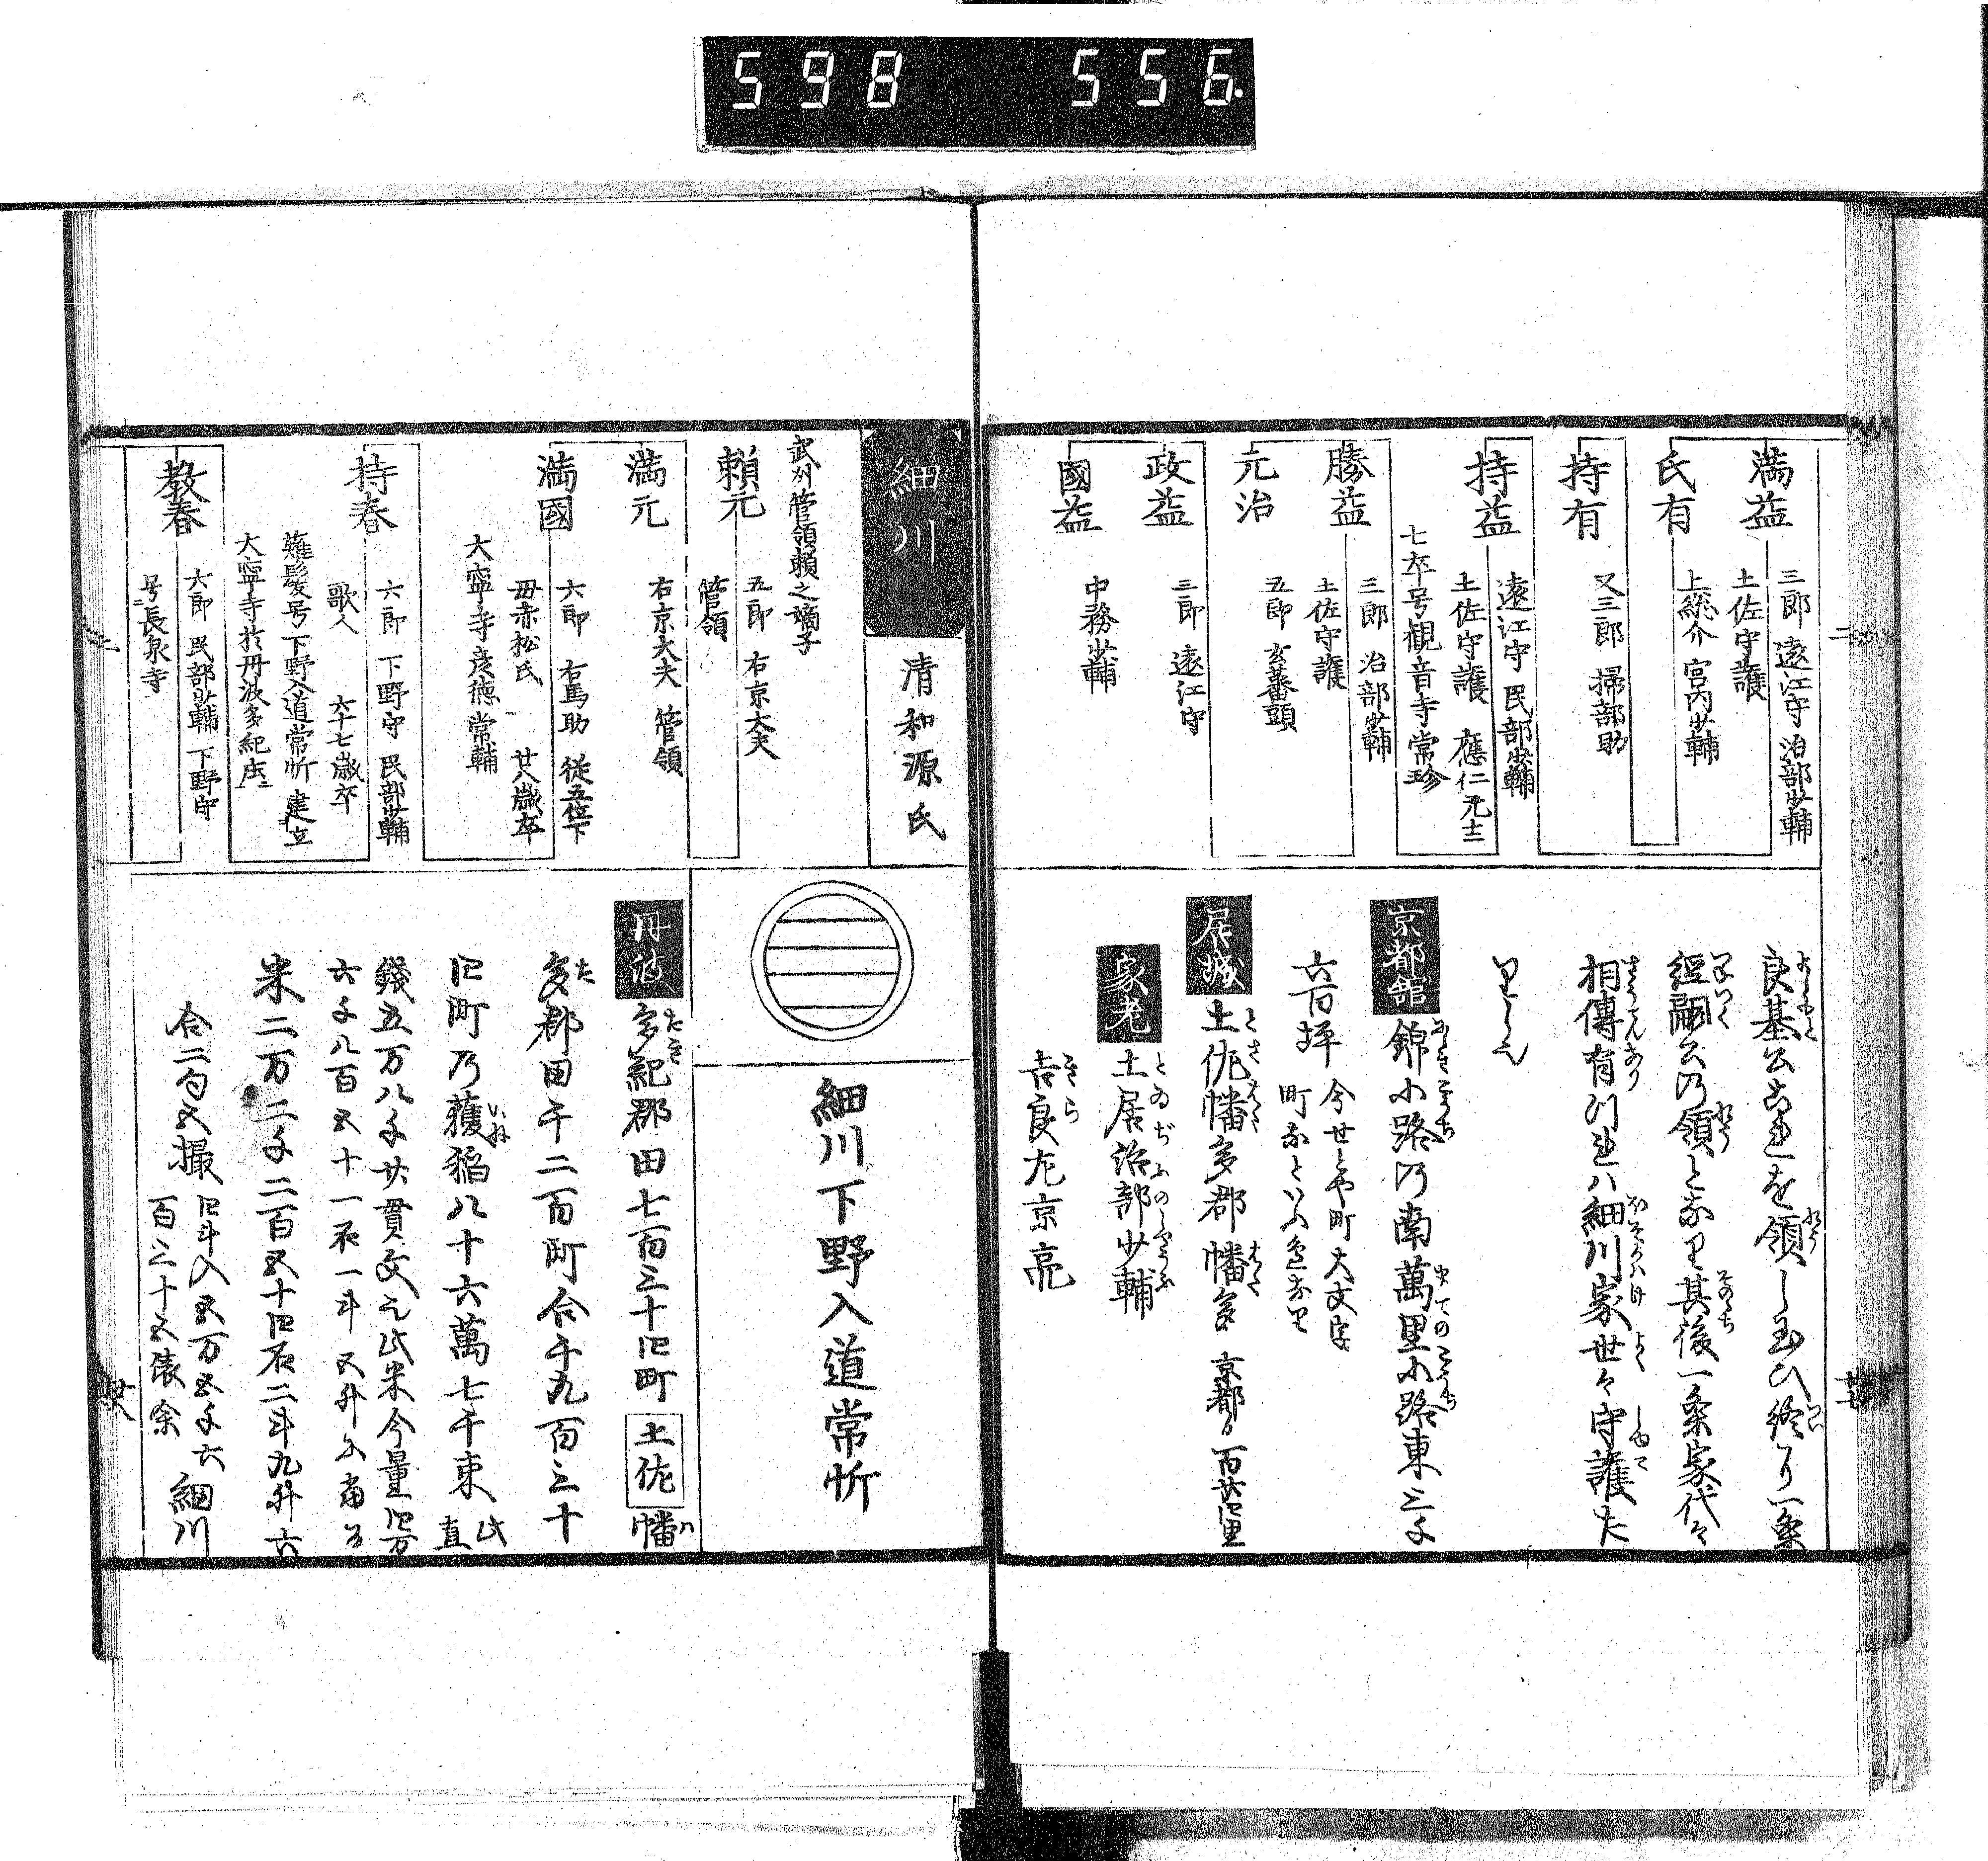 598 556.
満益
三郎 遠江守 治部少輔
土佐守護
氏有
上総介 宮内少輔
持有
又三郎 掃部助
持益
遠江守 民部少輔
土佐守護 應仁元十二
七卒号観音寺常珍
勝益
三郎 治部少輔
土佐守護
元治
五郎 玄蕃頭
政益
三郎 遠江守
國益
中務少輔
良基公これを領し玉ひ終り一条
経嗣公の領となり其後一条家代々
相傳有けれハ細川家世々守護た
りしか
京都館 錦小路の南萬里小路東三千
六百坪
今世や町大文字
町なといふ邉なり
居城 土佐幡多郡幡多 京都ヨリ百廿四里
家老 土居治部少輔
吉良左京亮
二
廿七
細川 清和源氏
武州管領頼之嫡子
頼元
五郎 右京大夫
管領
満元
右京大夫 管領
満國
六郎 右馬助 従五位下
母赤松氏 廿八歳卒
大寧寺彦徳常輔
持春
六郎 下野守 民部少輔
歌人 六十七歳卒
薙髪号下野入道常忻 建立
大寧寺於丹波多紀庄
教春
六郎 民部少輔 下野守
号長泉寺
細川下野入道常忻
丹波 多紀郡田七百三十四町 土佐 幡
多郡田千二百町合千九百三十
四町乃穫稲八十六萬七千束 此直
錢五万八千廿貫文也此米今量四万
六千八百五十一石一斗五升ニ當る
米二万二千二百五十四石二斗九升六
合二勺五撮
四斗入五万五千六
百三十五俵余
細川
二
廿八